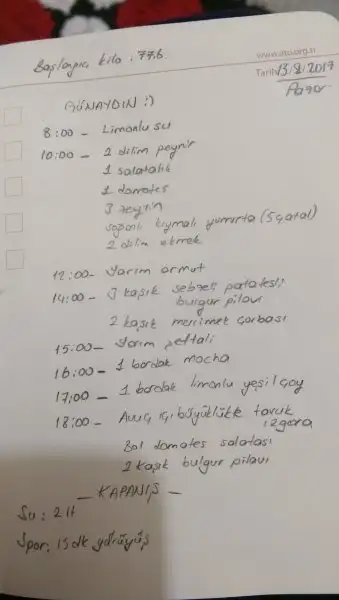 Başlangıç kilo : 77.6.
Tarih 13/8/2017
Pazar
GÜNAYDIN :)
8:00 - Limonlu su
10:00 - 1 dilim peynir
1 salatalık
1 domates
3 zeytin
soğanlı kıymalı yumurta (5 çatal)
2 dilim ekmek
12:00- Yarım armut
14:00 - 3 kaşık sebzeli patatesli
bulgur pilavı
2 kaşık mercimek çorbası
15:00- Yarım şeftali
16:00 - 1 bardak mocha
17:00 - 1 bardak limonlu yeşil çay
18:00 - Avuç içi büyüklükte tavuk
ızgara
Bol domates salatası
2 kaşık bulgur pilavı
- KAPANIŞ -
Su : 2 lt
Spor: 15 dk yürüyüş